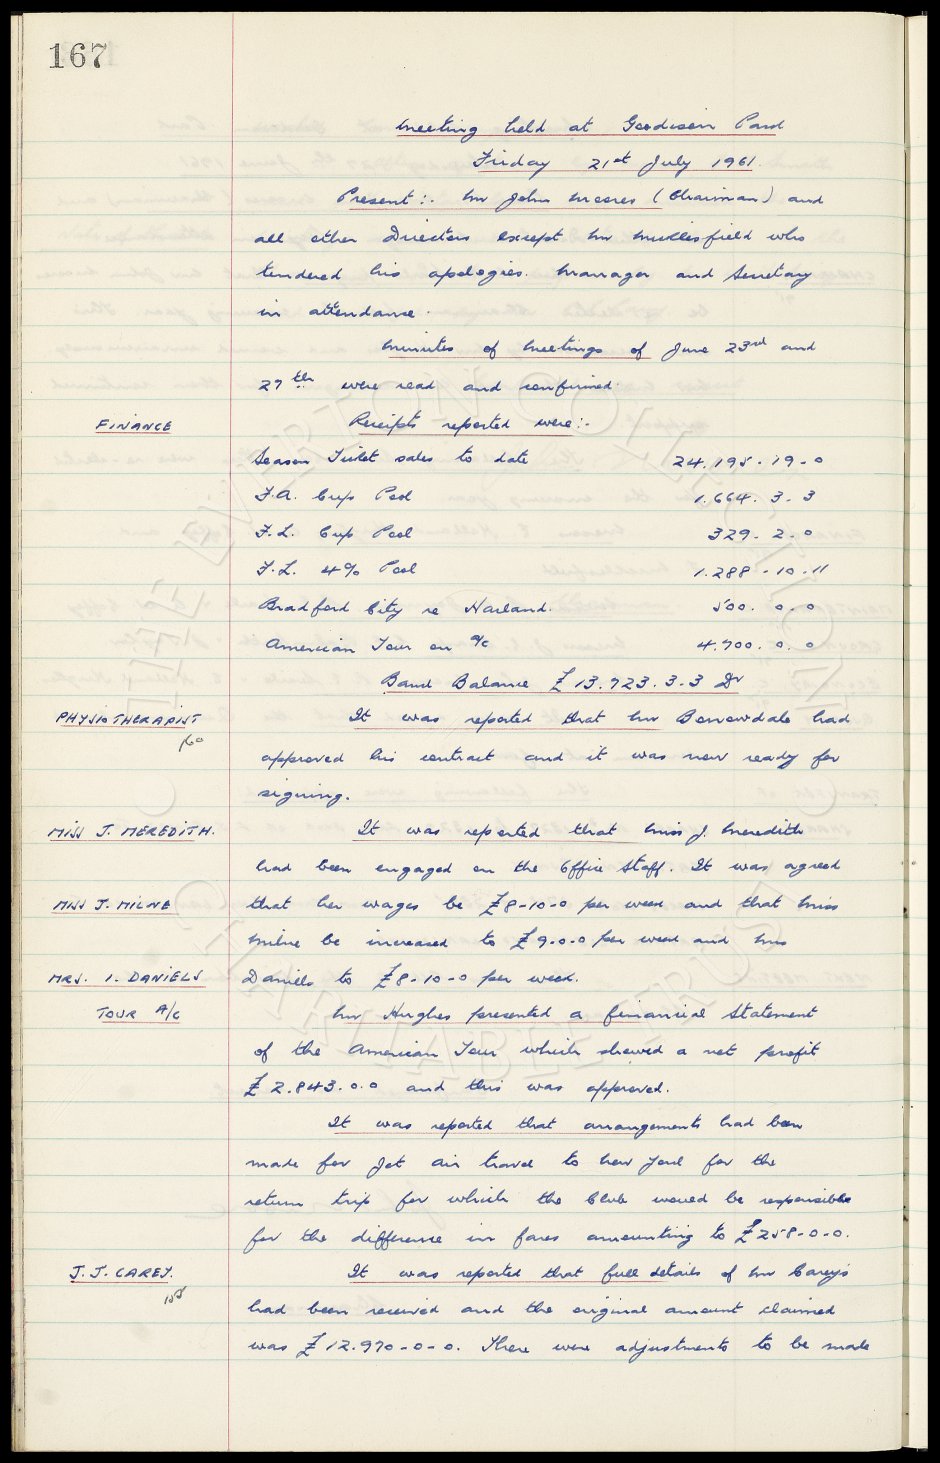 167
Meeting held at Goodison Park
Friday 21st July 1961.
Present :- Mr John Moores (Chairman) and
all other Directors except Mr Micklesfield who
tendered his apologies. Manager and Secretary
in attendance.
Minutes of Meetings of June 23rd and
27th were read and confirmed.
FINANCE Receipts reported were:-
Season Ticket sales to date 24.195-19-0
F.A. Cup Pool 1.664. 3. 3
F.L. Cup Pool 329. 2. 0
F.L. 4% Pool 1.288-10-11
Bradford City re Harland. 500. 0. 0
American Tour on a/c 4.700. 0. 0
Bank Balance £13.723.3.3 Dr
PHYSIOTHERAPIST It was reported that Mr Borrowdale had
approved his contract and it was now ready for
signing.
MISS J. MEREDITH. It was reported that Miss J. Meredith
had been engaged on the Office Staff. It was agreed
MISS J. MILNE that her wages be £8-10-0 per week and that Miss
Milne be increased to £9.0.0 per week and Mrs
MRS. I. DANIELS Daniels to £8-10-0 per week.
TOUR A/C Mr Hughes presented a financial Statement
of the American Tour which showed a net profit
£2.843.0.0 and this was approved.
It was reported that arrangements had been
made for Jet Air travel to New York for the
return trip for which the Club would be responsible
for the difference in fares amounting to £258-0-0.
J. J. CAREY. It was reported that full details of Mr Carey's
had been received and the original amount claimed
was £12.970-0-0. There were adjustments to be made